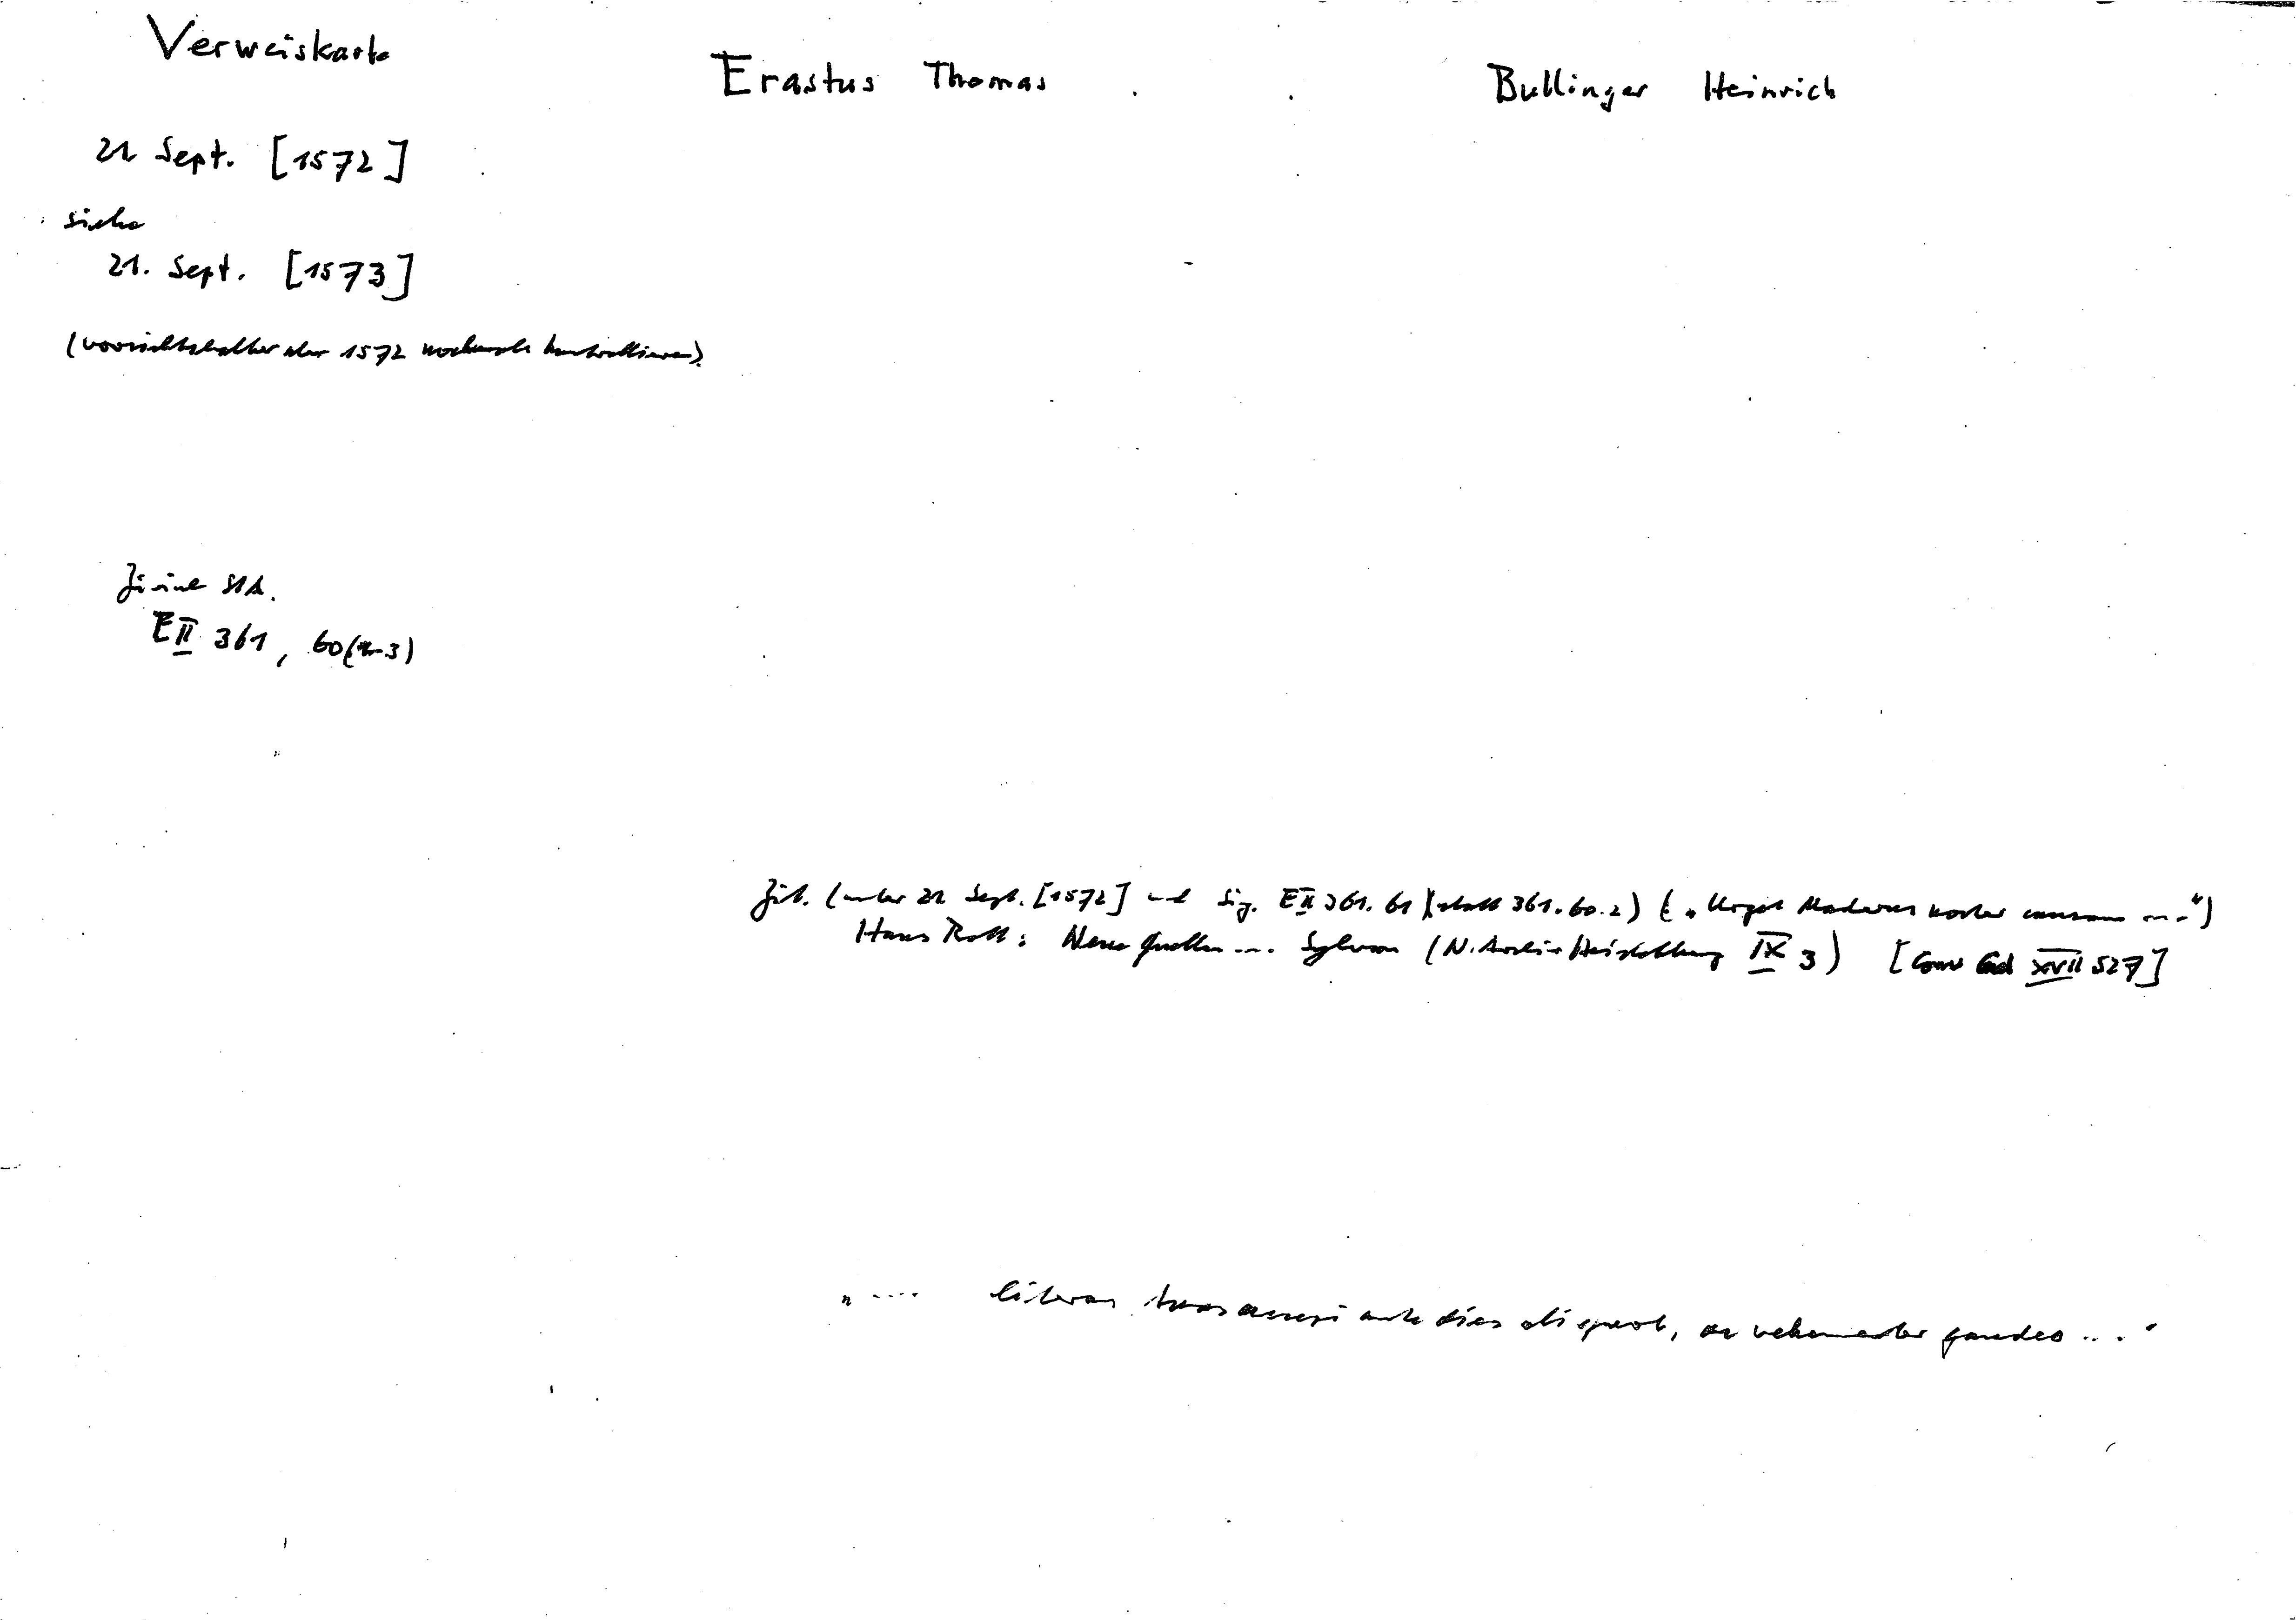 Verweiskarte
Erastus Thomas
Bullinger Heinrich
21 Sept. [1572]
siehe
21. Sept. [1573]
(vorsichtshalber aber 1572 nochmals kontrollieren)
Zürich StA.
E II 361, 60(
Zit. (unter 21 Sept. [1572] und Sig. E II 361. 61)(statt 361.60.2) („Urget Maderus noster causam ...")
Hans Rott: Neue Quellen ... Sylvan (N. Archiv Heidelberg IX 3) [XVII 527]
„.... literas tuas accepi ante dies aliquot, ac vehementer gaudeo ...."